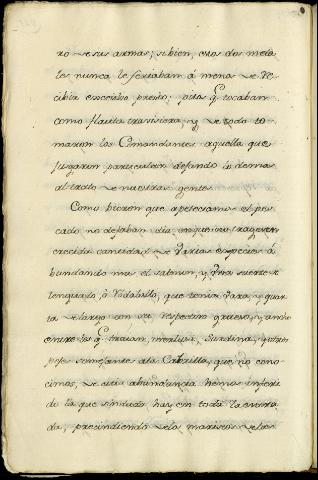 ro de sus armas; si bien, estos dos meta
les nunca le feriaban á menos de re
cibir en cambio presto, pitos q.e tocaban
como flauta trasversera, y de todo to
maron los Comandantes aquello que
jugaron particular dejando lo demas
al trato de nuestras gentes.
Como vieron que apeteciamos el pes
cado no dejaban dia en que no trageren
crecida cantidad de varias especies á
bundando mas el salmon, y una suerte de
lenguado, ó Rodaballo, que tenia vara, y quar
ta de largo con su respectivo grueso, y ancho
entre los q.e traian, merluza, Sardina, y otro
pese semejante ala Cabrilla, que, no cono
cimos, de cuia abundancia hemos inferi
do la que sin duda hay en toda la entra
da, prescindiendo de los mariscos de las